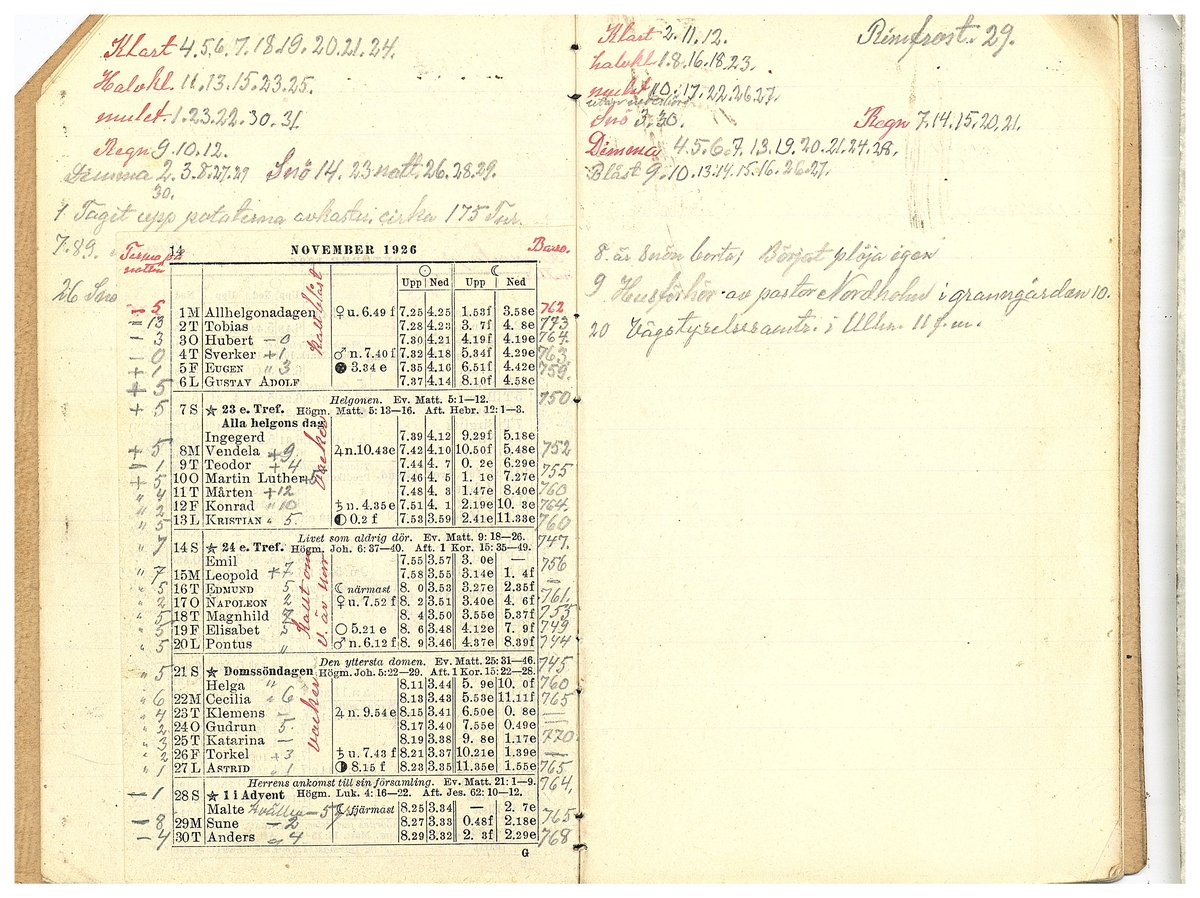 Klart 4.5.6.7.18.19.20.21.24.
Halvkl. 11.13.15.23.25.
mulet. 1.23.22.30.31.
Regn 9.10.12.
Dimma 2.3.8.27.29 Snö 14. 23 natt. 26.28.29.
30.
1 Taget upp potaterna avkastn. cirka 175 Tnr.
7.89.
26 Snö
14 NOVEMBER 1926 Baro.
Upp Ned Upp Ned
5 1 M Allhelgonadagen ♀ u. 6.49 f 7.25 4.25 1.53f 3.58e 762
–13 2 T Tobias 7.28 4.23 3. 7f 4. 8e 773
–3 3 O Hubert –0 7.30 4.21 4.19f 4.19e 764.
–0 4 T Sverker +1 ♂ n. 7.40 f 7.32 4.18 5.34f 4.29e 763.
+1 5 F EUGEN " 3 3.34 e 7.35 4.16 6.51f 4.42e 759.
+5 6 L GUSTAV ADOLF 7.37 4.14 8.10f 4.58e
Kallblåst
Helgonen. Ev. Matt. 5: 1—12. 750
+5 7 S ★ 23 e. Tref. Högm. Matt. 5: 13—16. Aft. Hebr. 12: 1—3.
Alla helgons dag
Ingegerd 7.39 4.12 9.29f 5.18e
+5 8 M Vendela +9 ♃ n. 10.43e 7.42 4.10 10.50f 5.48e 752
1 9 T Teodor +4 7.44 4. 7 0. 2e 6.29e 755
+5 10 O Martin Luther 7.46 4. 5 1. 1e 7.27e
" 4 11 T Mårten +12 7.48 4. 3 1.47e 8.40e 760
" 2 12 F Konrad " 10 ♄ n. 4.35 e 7.51 4. 1 2.19e 10. 3e 764.
" 5 13 L KRISTIAN " 5. ◐ 0.2 f 7.53 3.59 2.41e 11.33e 760
vacker
Livet som aldrig dör. Ev. Matt. 9: 18—26. 747.
" 7 14 S ★ 24 e. Tref. Högm. Joh. 6: 37—40. Aft. 1 Kor. 15: 35—49.
Emil 7.55 3.57 3. 0e — 756
" 7 15 M Leopold +7 7.58 3.55 3.14e 1. 4f —
" 5 16 T EDMUND 5 ☾ närmast 8. 0 3.53 3.27e 2.35f 761.
" 2 17 O NAPOLEON 2 ♀ u. 7.52 f 8. 2 3.51 3.40e 4. 6f
" 5 18 T Magnhild 7 8. 4 3.50 3.55e 5.37f 755
" 5 19 F Elisabet 5 ○ 5.21 e 8. 6 3.48 4.12e 7. 9f 749
" 5 20 L Pontus " ♂ n. 6.12 f 8. 9 3.46 4.37e 8.39f 744
Den yttersta domen. Ev. Matt. 25: 31—46. 745
" 5 21 S ★ Domssöndagen Högm. Joh. 5: 22—29. Aft. 1 Kor. 15: 22—28.
Helga " 8.11 3.44 5. 9e 10. 0f 760
" 6 22 M Cecilia " 6 8.13 3.43 5.53e 11.11f 765
" 4 23 T Klemens – ♃ n. 9.54 e 8.15 3.41 6.50e 0. 8e —
" 2 24 O Gudrun 5. 8.17 3.40 7.55e 0.49e —
" 3 25 T Katarina — 8.19 3.38 9. 8e 1.17e 770
" 2 26 F Torkel +3 ♄ u. 7.43 f 8.21 3.37 10.21e 1.39e —
" 1 27 L ASTRID " 1 ◑ 8.15 f 8.23 3.35 11.35e 1.55e 765
vacker
Herrens ankomst till sin församling. Ev. Matt. 21: 1—9. 764,
–1 28 S ★ 1 i Advent Högm. Luk. 4: 16—22. Aft. Jes. 62: 10—12.
Malte kvällen –5 ☾ fjärmast 8.25 3.34 — 2. 7e
–8 29 M Sune –2 8.27 3.33 0.48f 2.18e 765
–4 30 T Anders 4 8.29 3.32 2. 3f 2.29e 768
G
Klart 2.11.12. Rimfrost. 29.
halvkl 1.8.16.18.23.
mulet 10.17.22.26.27.
Snö 3.30. Regn 7.14.15.20.21.
Dimma 4.5.6.7.13.19.20.21.24.28.
Blåst 9.10.13.14.15.16.26.27.
8. är snön borta; Börjat plöja igen
9 Husförhör av pastor Nordholm i granngården 10.
20 Vägstyrelsesamtr. i Ulhn. 11 f.m.